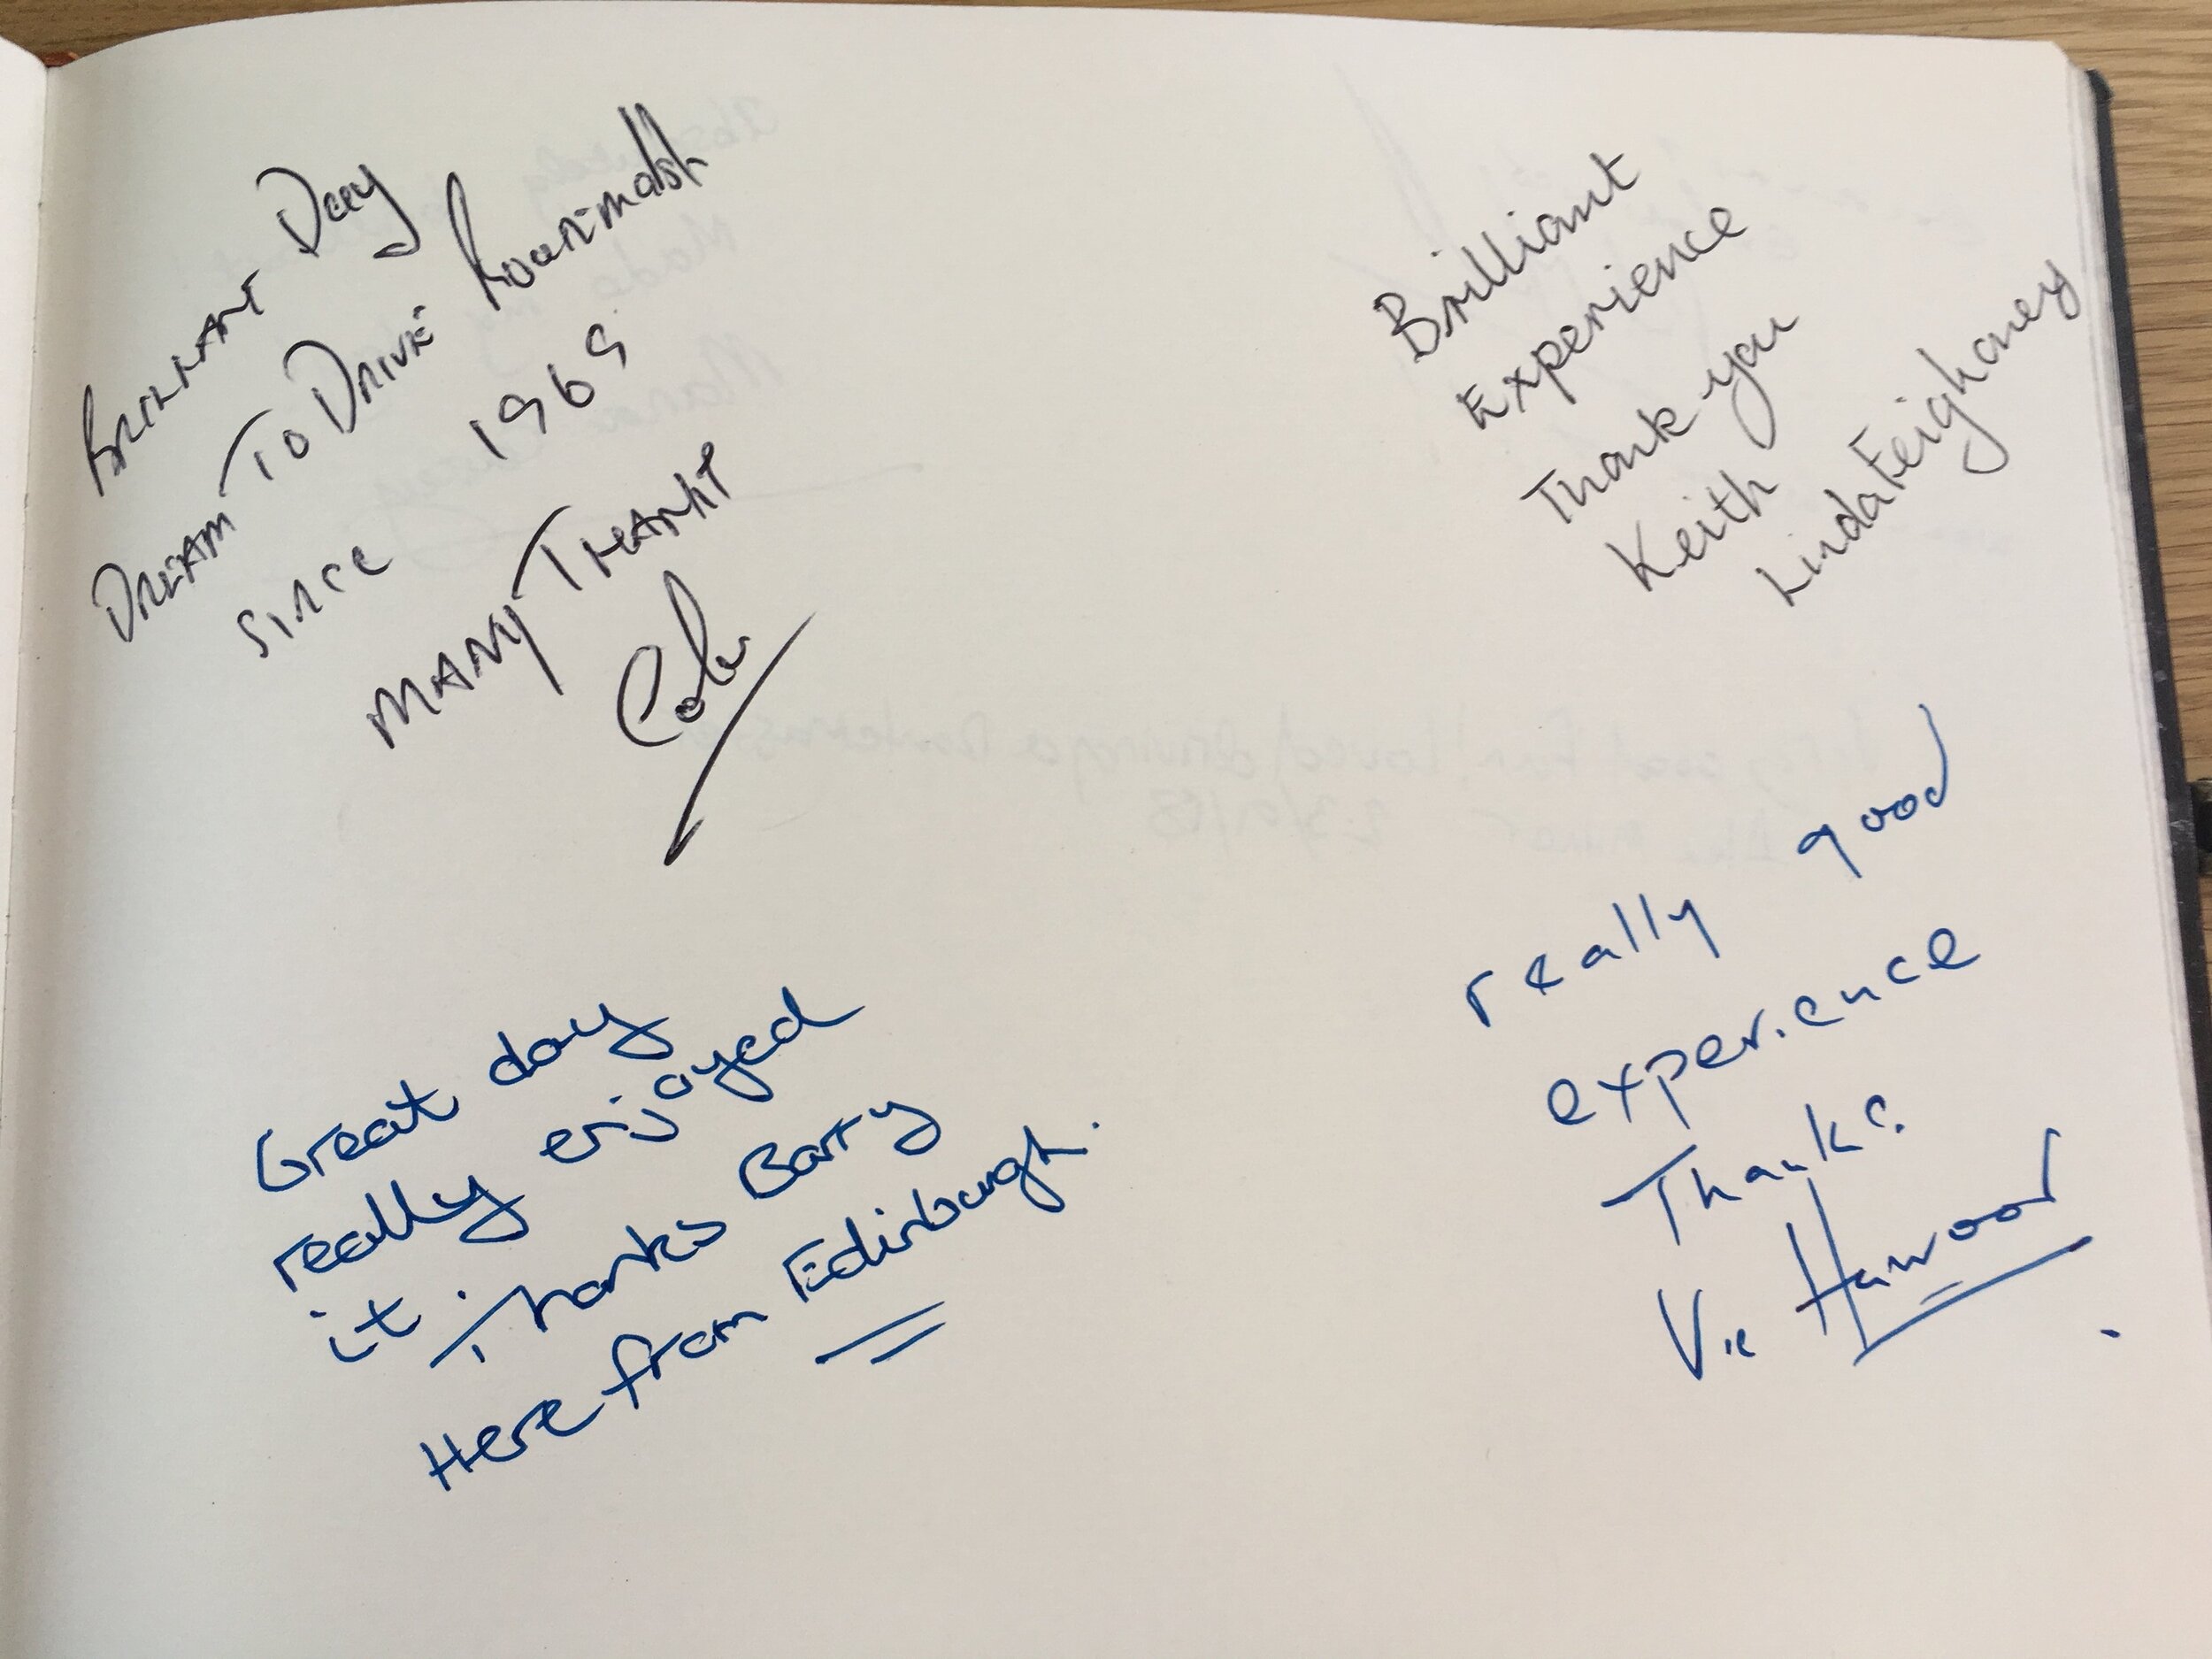 BRILLIANT DAY
DREAM TO DRIVE
SINCE 1969
MANY THANKS
Brilliant
Experience
Thank you
Keith
Linda Feighoney
Great day
really enjoyed
it. Thanks Barry
Here from Edinburgh.
really good
experience
Thanks.
Vic Harwood